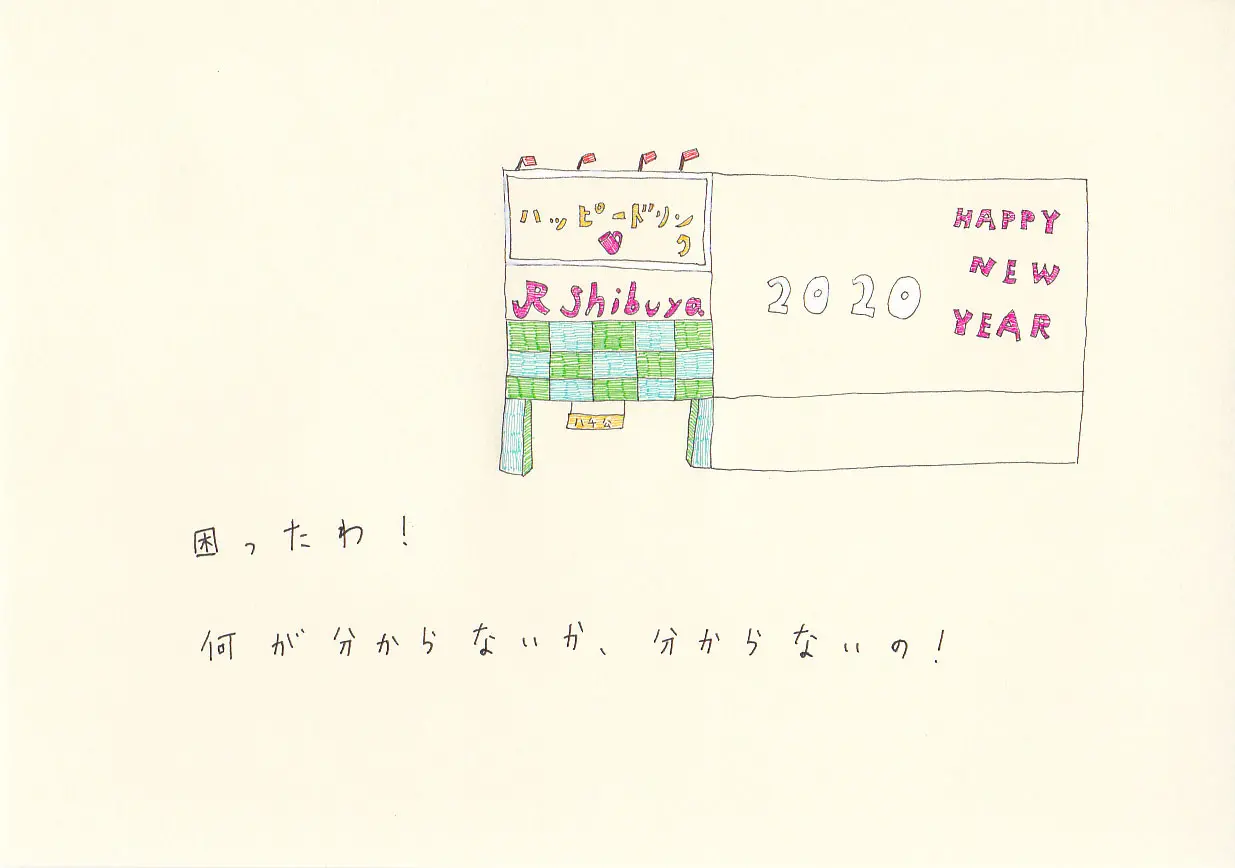 ハッピードリンク
JR Shibuya
ハチ公
2020
HAPPY
NEW
YEAR
困ったわ!
何が分からないか、分からないの!